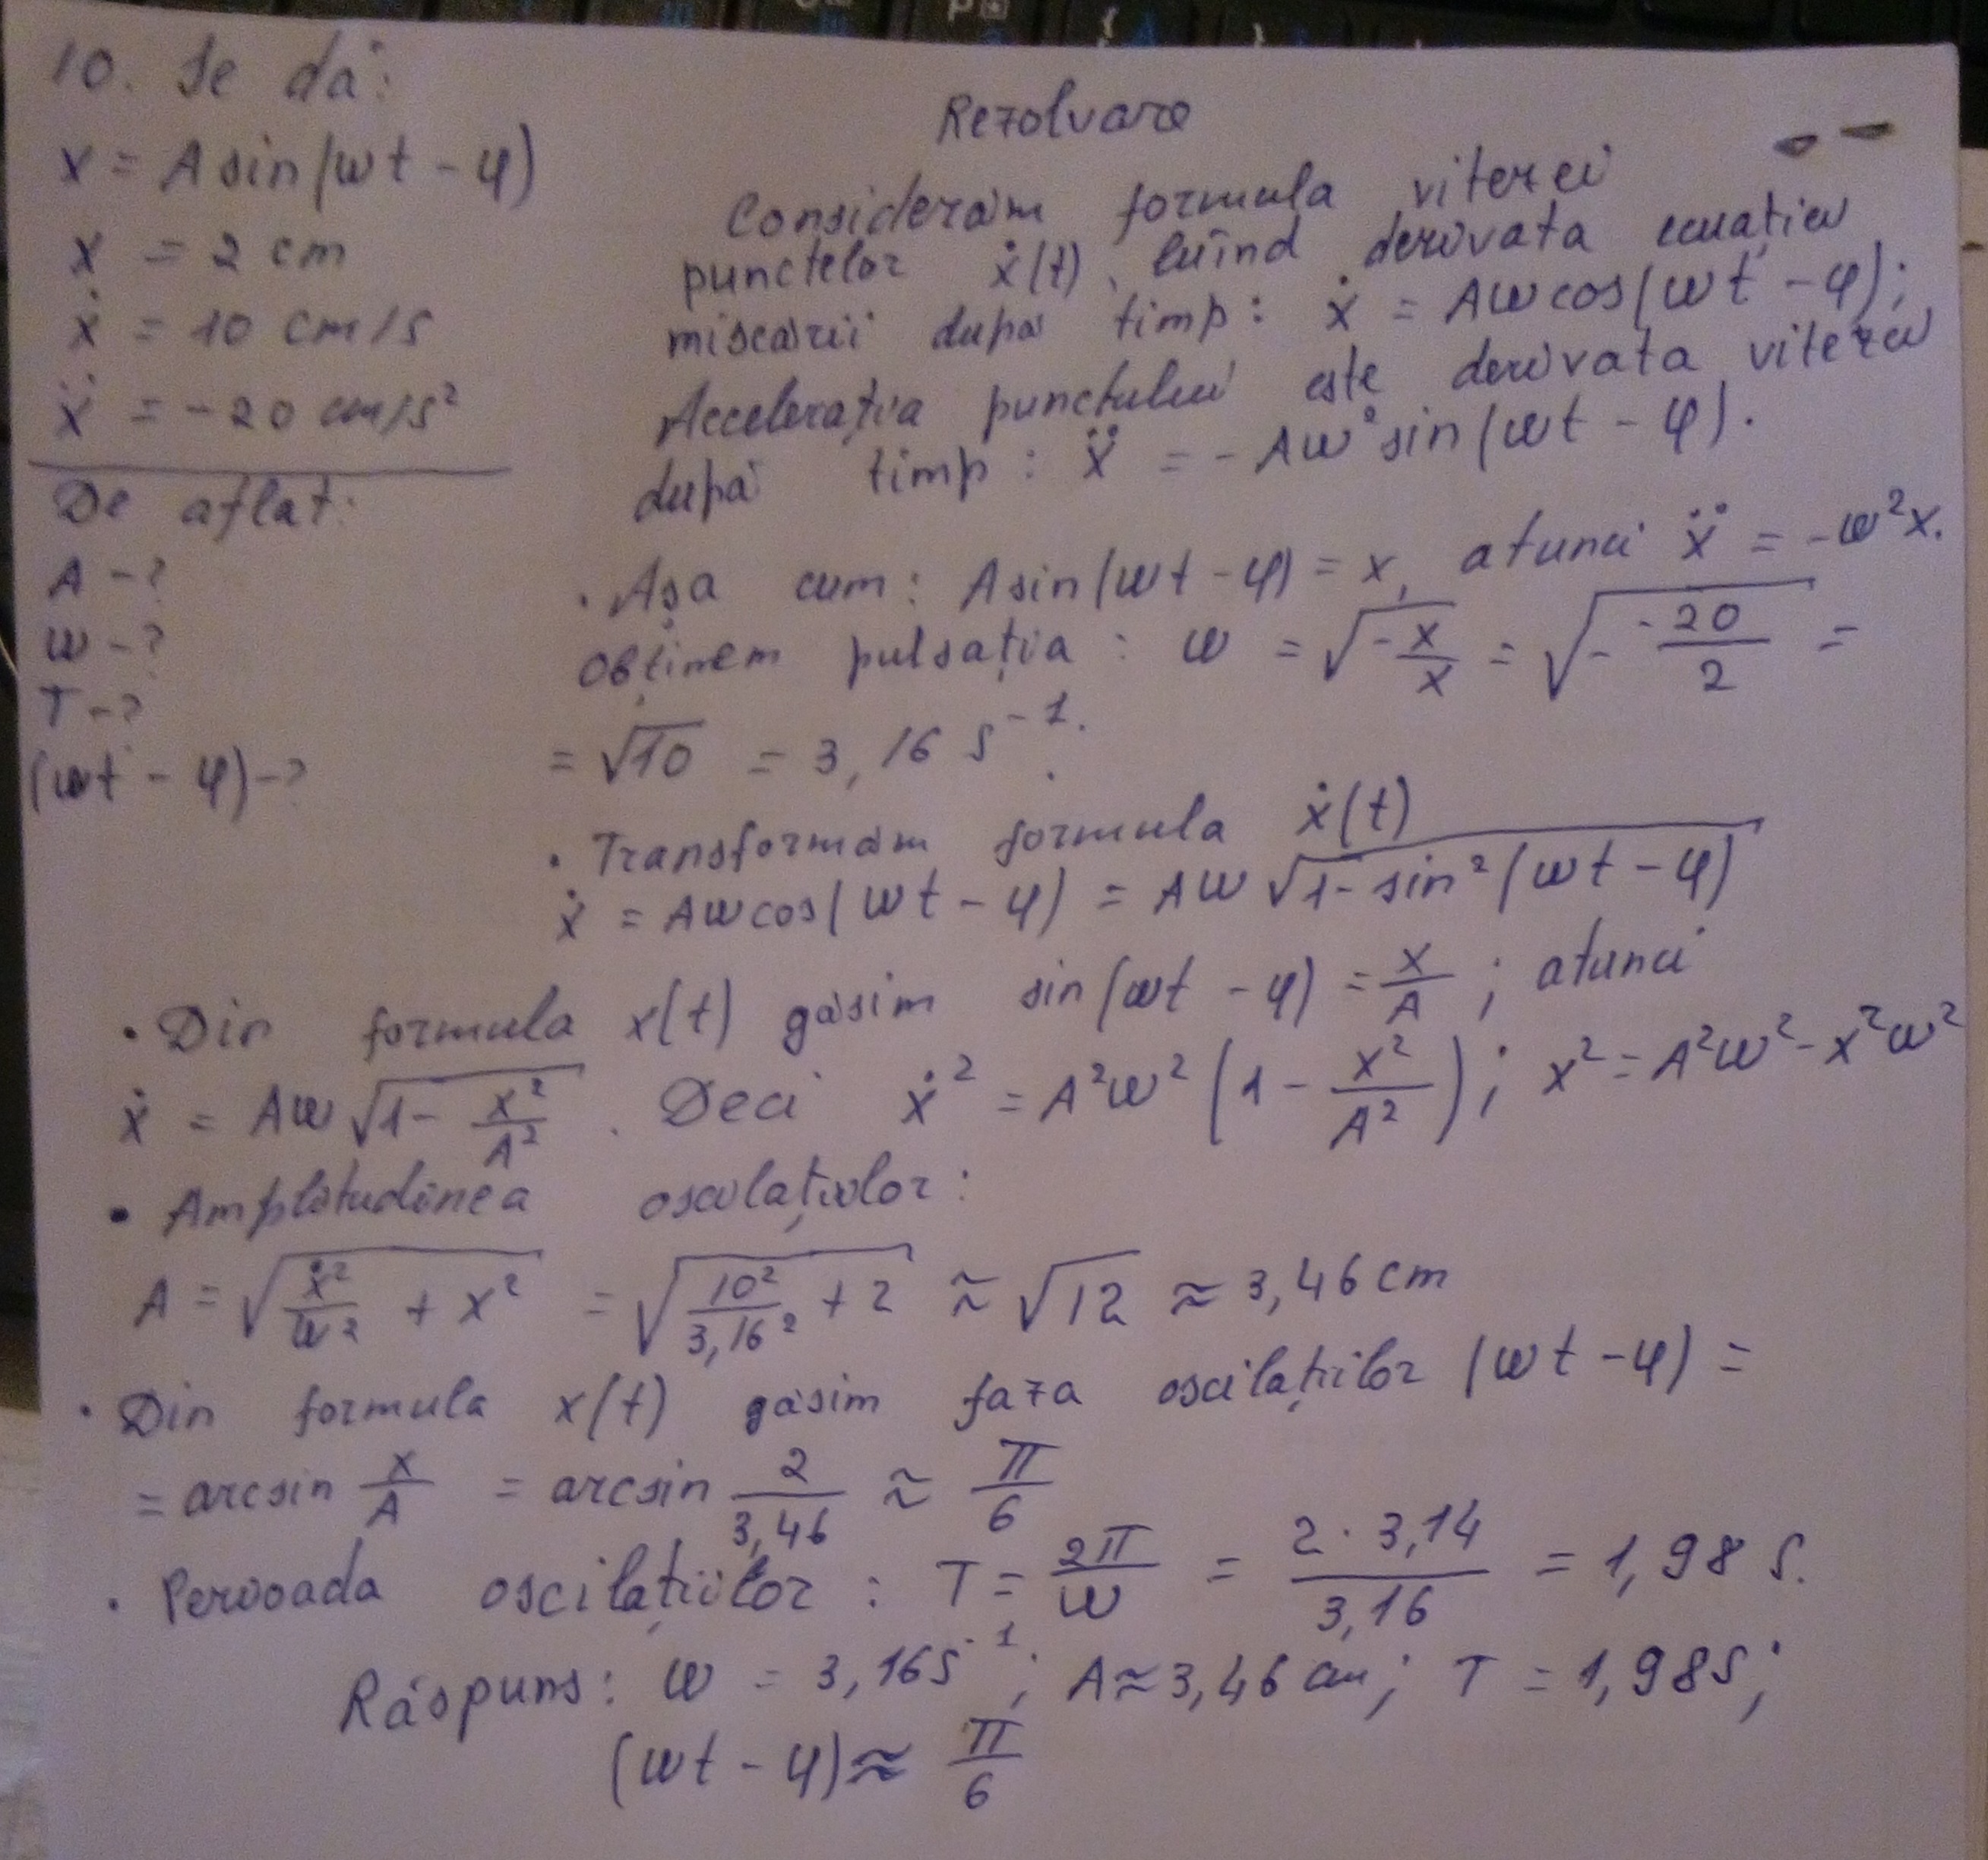 10. Se dă:
x = A sin(ωt - φ)
x = 2 cm
ẋ = 10 cm/s
ẍ = -20 cm/s²
De aflat:
A -?
ω -?
T -?
(ωt - φ) -?
Rezolvare
Considerăm formula vitezei
punctelor ẋ(t), luînd derivata ecuației
mișcării după timp: ẋ = Aω cos(ωt - φ);
Accelerația punctului este derivata vitezei
după timp: ẍ = -Aω² sin(ωt - φ).
· Așa cum: A sin(ωt - φ) = x, atunci ẍ = -ω²x.
Obținem pulsația: ω = √(-x/x) = √(- -20/2) =
= √10 = 3,16 s⁻¹.
· Transformăm formula ẋ(t)
ẋ = Aω cos(ωt - φ) = Aω √(1 - sin²(ωt - φ))
· Din formula x(t) găsim sin(ωt - φ) = x/A; atunci
ẋ = Aω √(1 - x²/A²). Deci ẋ² = A²ω² (1 - x²/A²); x² = A²ω² - x²ω²
· Amplitudinea oscilațiilor:
A = √(ẋ²/ω² + x²) = √(10²/3,16² + 2) ≈ √12 ≈ 3,46 cm
· Din formula x(t) găsim faza oscilațiilor (ωt - φ) =
= arcsin x/A = arcsin 2/3,46 ≈ π/6
· Perioada oscilațiilor: T = 2π/ω = 2·3,14/3,16 = 1,98 s.
Răspuns: ω = 3,16 s⁻¹; A ≈ 3,46 cm; T = 1,98 s;
(ωt - φ) ≈ π/6